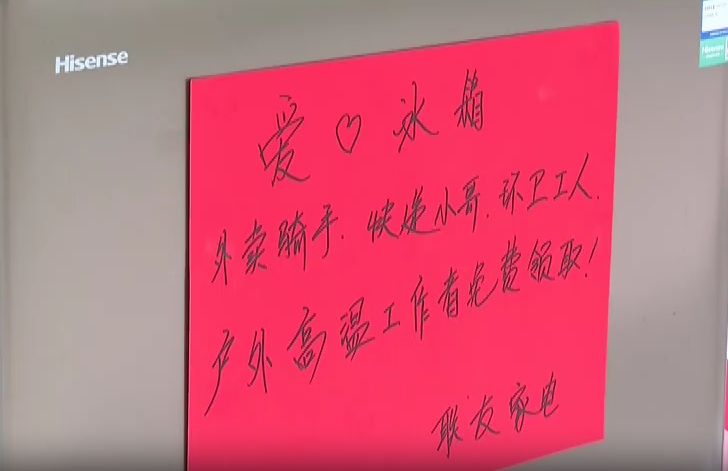 Hisense
爱♡冰箱
外卖骑手.快递小哥.环卫工人.
户外高温工作者免费领取!
联友家电